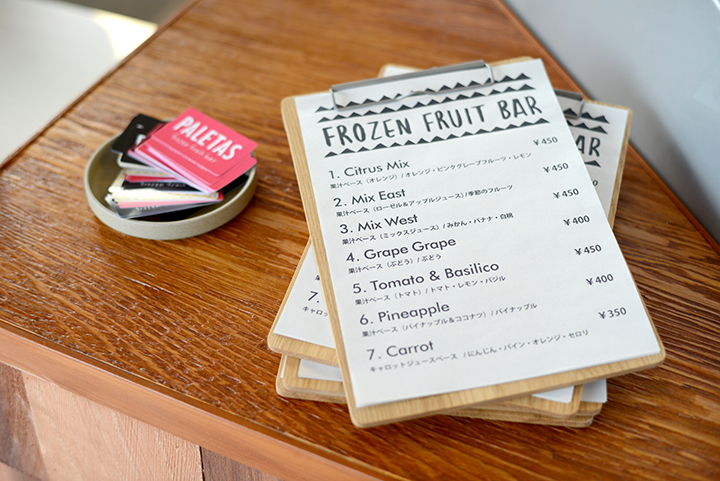 PALETAS
frozen fruit bar
FROZEN FRUIT BAR
1. Citrus Mix ¥450
果汁ベース（オレンジ）/ オレンジ・ピンクグレープフルーツ・レモン
2. Mix East ¥450
果汁ベース（ローゼル＆アップルジュース）/ 季節のフルーツ
3. Mix West ¥450
果汁ベース（ミックスジュース）/ みかん・バナナ・白桃
4. Grape Grape ¥400
果汁ベース（ぶどう）/ ぶどう
5. Tomato & Basilico ¥450
果汁ベース（トマト）/ トマト・レモン・バジル
6. Pineapple ¥400
果汁ベース（パイナップル＆ココナツ）/ パイナップル
7. Carrot ¥350
キャロットジュースベース / にんじん・パイン・オレンジ・セロリ
BAR
7.
キャロ